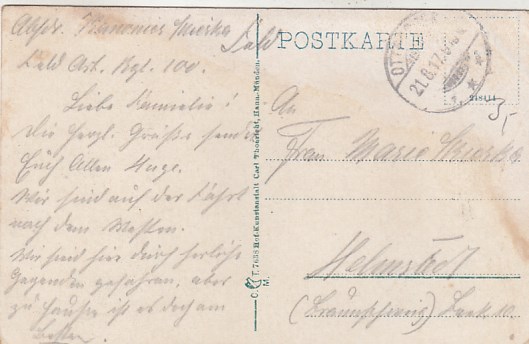 Absdr. Kanonier Mierka
Feld
Feld Art. Rgt. 100.
Liebe Familie!
Die herzl. Grüße sendet
Euch Allen Hugo.
Wir sind auf der Fahrt
nach dem Westen.
Wir sind hier durch herliche
Gegenden gefahren, aber
zu Hause ist es doch am
Besten.
C. T. 7688 Hof-Kunstanstalt Carl Thoericht, Hann.-Münden.
M.
POSTKARTE
21.8.17.
An
Frau Marie
Helmstedt
(Braunschweig)